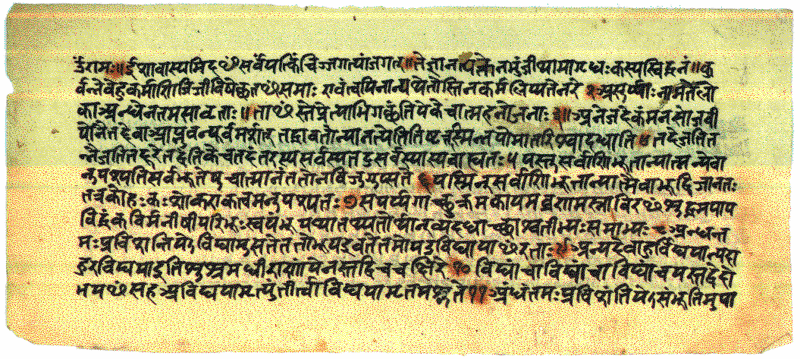 ॐरामः॥ईशावास्यमिदꣳसर्वंयत्किंचिज्जगत्यांजगत्॥तेनत्यक्तेनभुंजीथामागृधःकस्यस्विद्धनं॥कु
र्वन्नेवेहकर्माणिजिजीविषेच्छतꣳसमाः एवंत्वयिनान्यथेतोस्तिनकर्मलिप्यतेनरे २असुर्य्याःनामतेलो
काअन्धेनतमसावृताः॥ताꣳस्तेप्रेत्याभिगछंतियेकेचात्महनोजनाः३॥अनेजदेकंमनसोजवी
योनैनद्देवाआप्नुवन्पूर्वमर्शत् तद्धावतोन्यानत्येतितिष्ठत्तस्मिन्नपोमातरिश्वादधाति॥तदेजतित
न्नैजतितद्दूरेतद्वंतिकेतदंतरस्यसर्वस्यतदुसर्वस्यास्यबाह्यतः५यस्तुसर्वाणिभूतान्यात्मन्येवा
नुपश्यतिसर्वभूतेषुचात्मानंततोनविजुगुप्सते ६यस्मिन्सर्वाणिभूतान्यात्मैवाभूद्विजानतः
तत्रकोमोहःकःशोकएकत्वमनुपश्यतः७सपर्य्यगाच्छुक्रमकायमव्रणमस्नाविरꣳशुद्धमपाप
विद्धंकविर्मनीषीपरिभूःस्वयंभूर्याथातथ्यतोर्थान्व्यदधाच्छाश्वतीभ्यःसमाभ्यः८अन्धन्त
मःप्रविशन्तियेविद्यामुपासतेततोभूयइवतेतमोयउविद्यायाꣳरताः९अन्यदेवाहुर्विद्ययान्यदा
हुरविद्ययाइतिशुश्रुमधीराणांयेनस्तद्विचचक्षिरे१०विद्यांचाविद्यांचाविद्यांचयस्तद्वेदो
भयꣳसहअविद्ययामृत्युंतीर्त्वाविद्ययामृतमश्नुते११अंधंतमःप्रविशंतियेऽसंभूतिमुपा